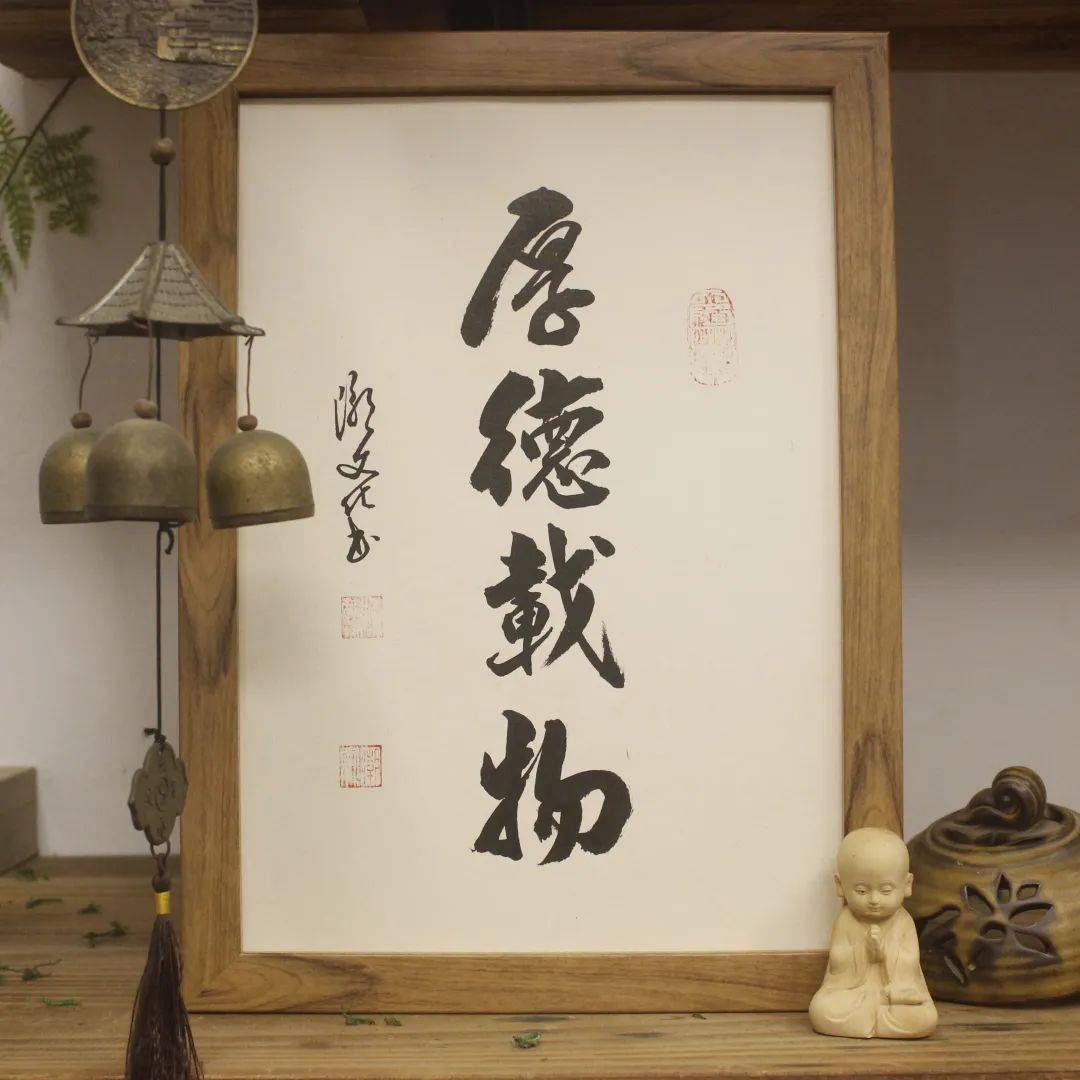 厚德載物
文化书